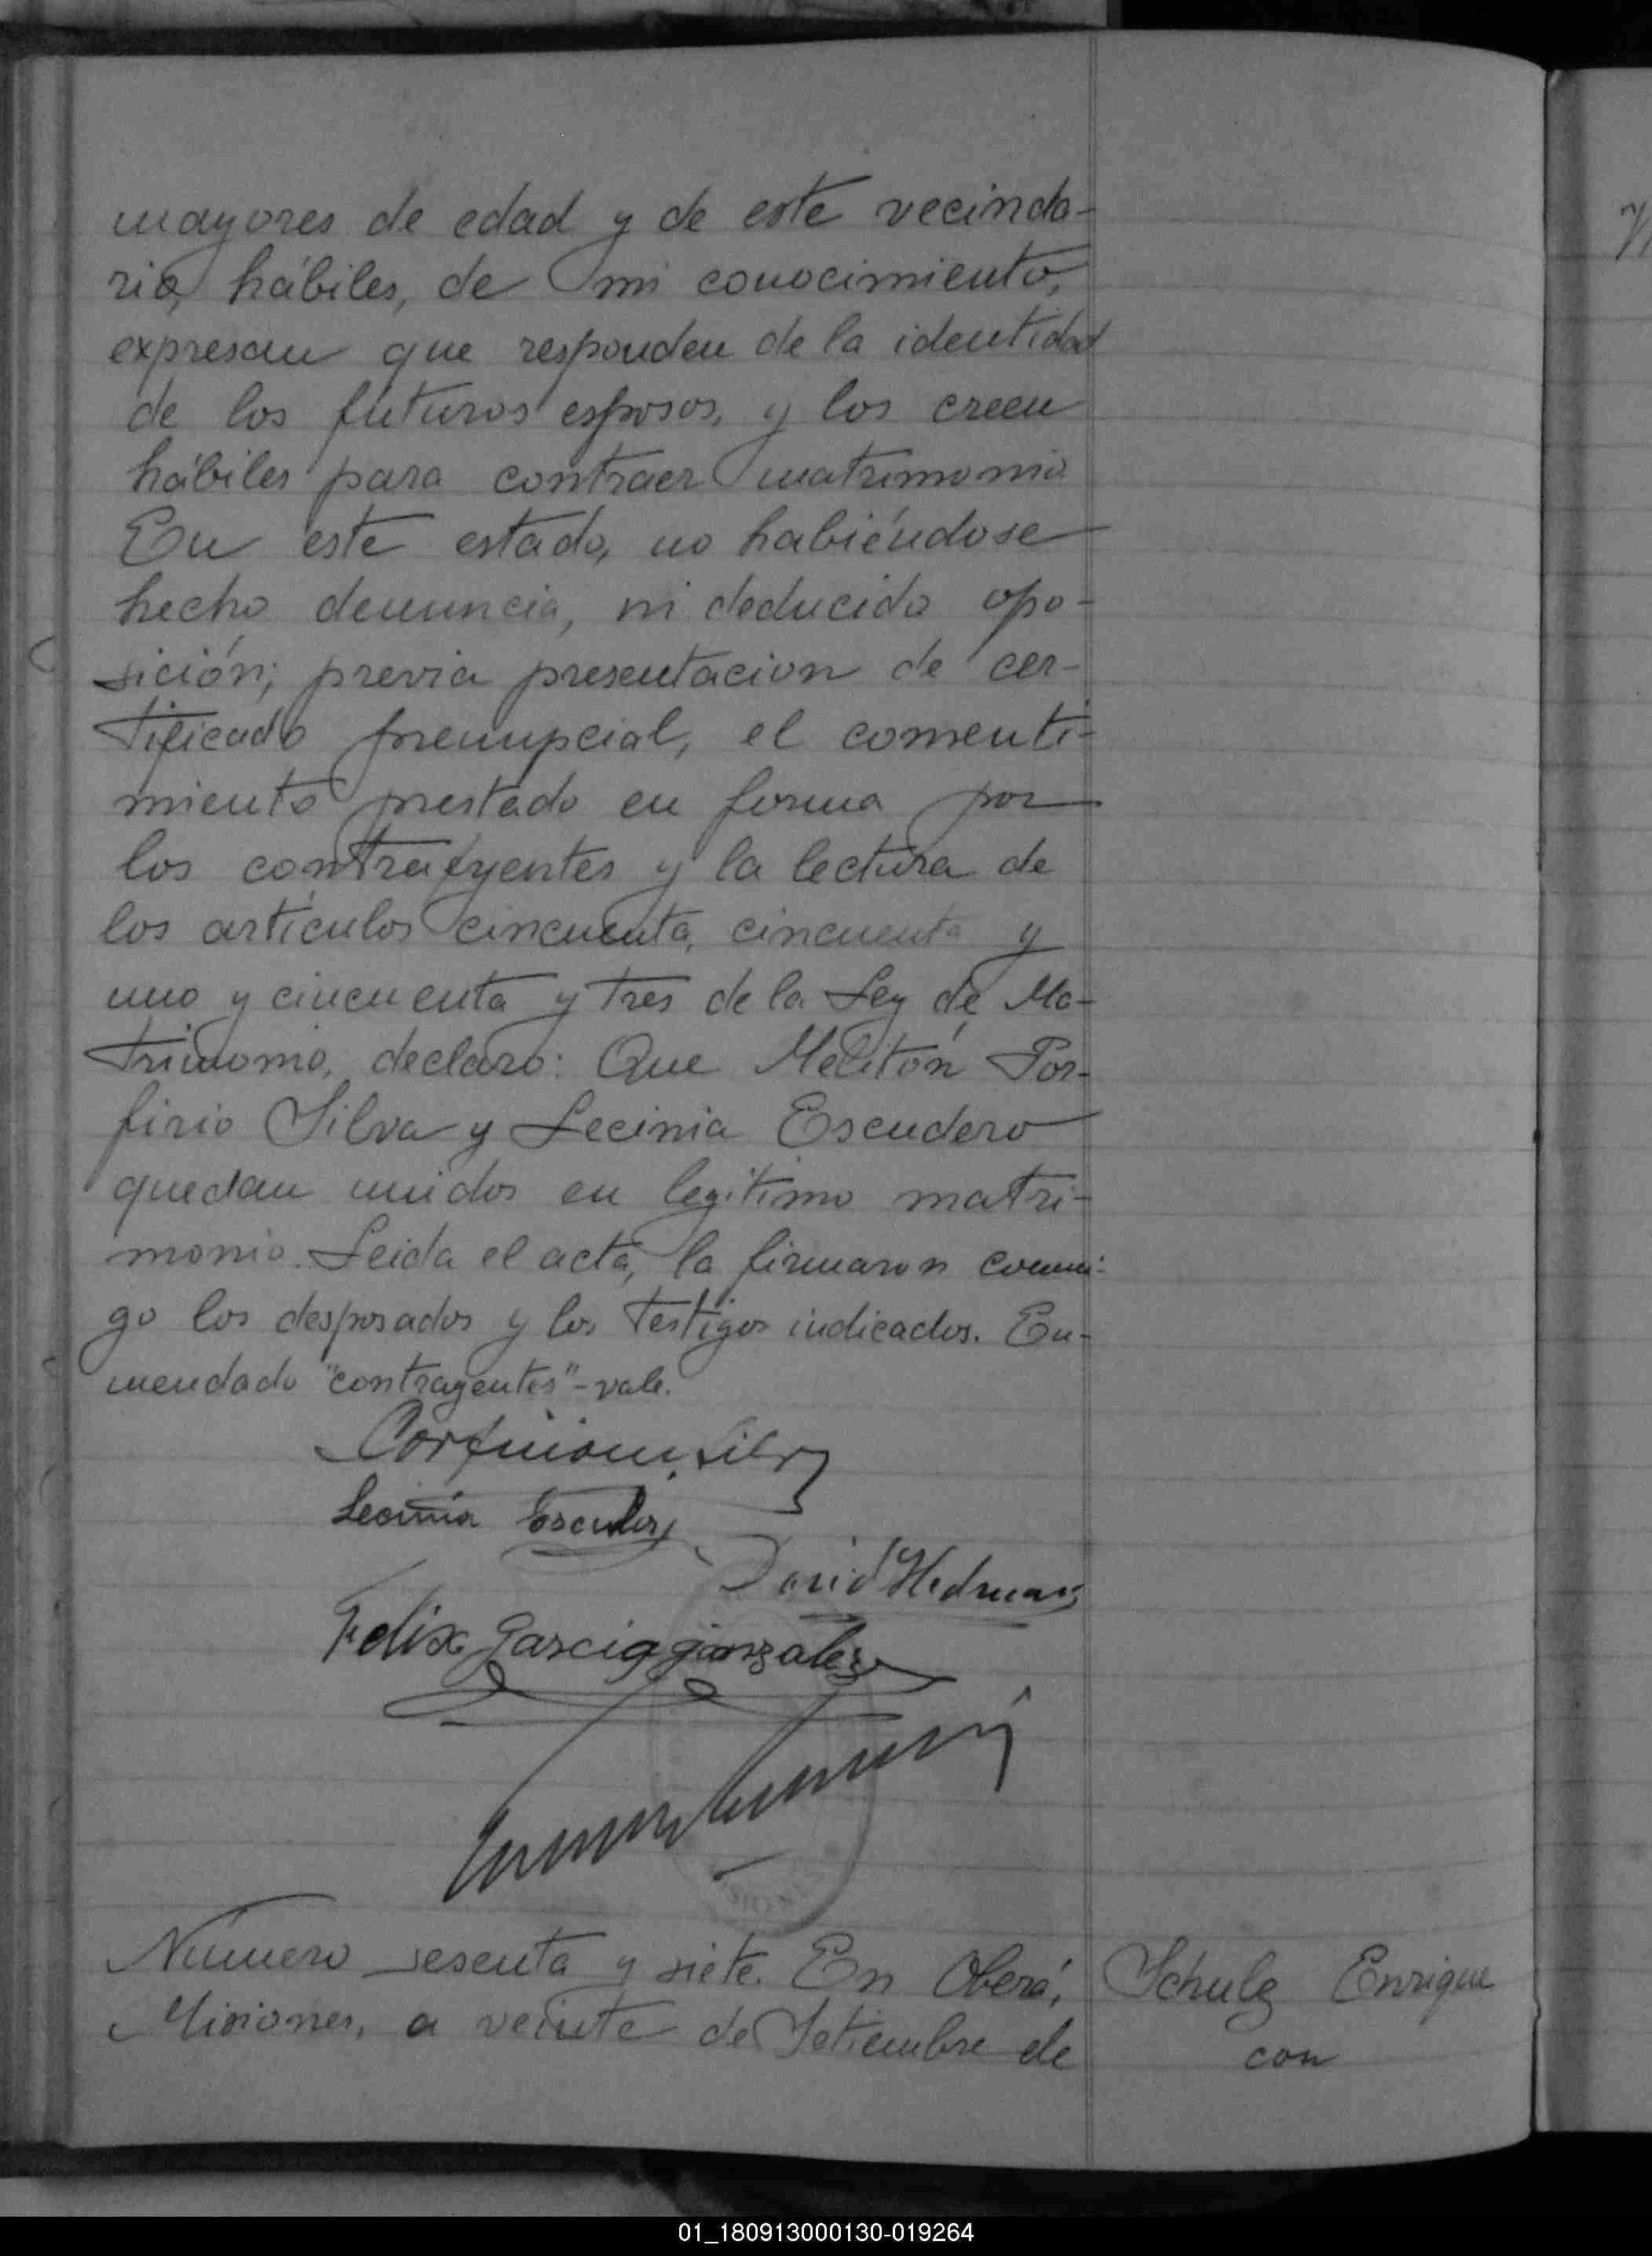 mayores de edad y de este vecinda-
rio, hábiles, de mi conocimiento,
expresan que responden de la identidad
de los futuros esposos, y los creen
hábiles para contraer matrimonio
En este estado, no habiéndose
hecho denuncia, ni deducido opo-
sición; previa presentacion de cer-
tificado prenupcial, el consenti-
miento prestado en forma por
los contrayentes y la lectura de
los artículos cincuenta, cincuenta y
uno y cincuenta y tres de la Ley de Ma-
trimonio, declaro: Que Melitón Por-
firio Silva y Lecinia Escudero
quedan unidos en legitimo matri-
monio. Leida el acta, la firmaron conmi-
go los desposados y los testigos indicados. En-
mendado "contragentes"-vale.
Silva
Lecinia Escudero
David
Felix Garcia gonzalez
Número sesenta y siete. En Oberá,
Misiones, a veinte de Setiembre de
Schulz Enrique
con
01_180913000130-019264